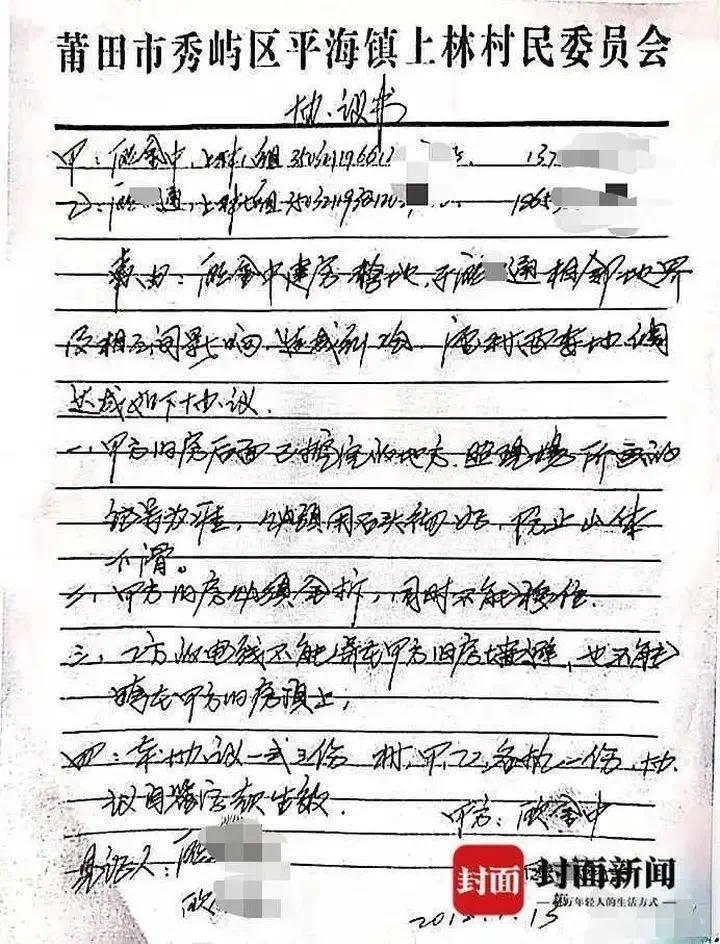 莆田市秀屿区平海镇上林村民委员会
协议书
甲：欧金中，上林组 35032119661
乙：欧 通，上林组 350321193212
事由：欧金中建房整地，于欧 通相邻地界
及相互间影响，造成纠纷，经村两委协调
达成如下协议．
一、甲方旧房后面已挖完的地方，照现场所画的
为准，必须用石头砌好，防止山体
下滑。
二、甲方旧房必须全拆，同时不能移位．
三、乙方的电线不能靠在甲方旧房墙边，也不能
在甲方旧房顶上，
四：本协议一式三份 村，甲，乙，各执一份，协
议自签字起生效．
甲方：欧金中
见证人：欧
欧
封面
封面新闻
亿万年轻人的生活方式